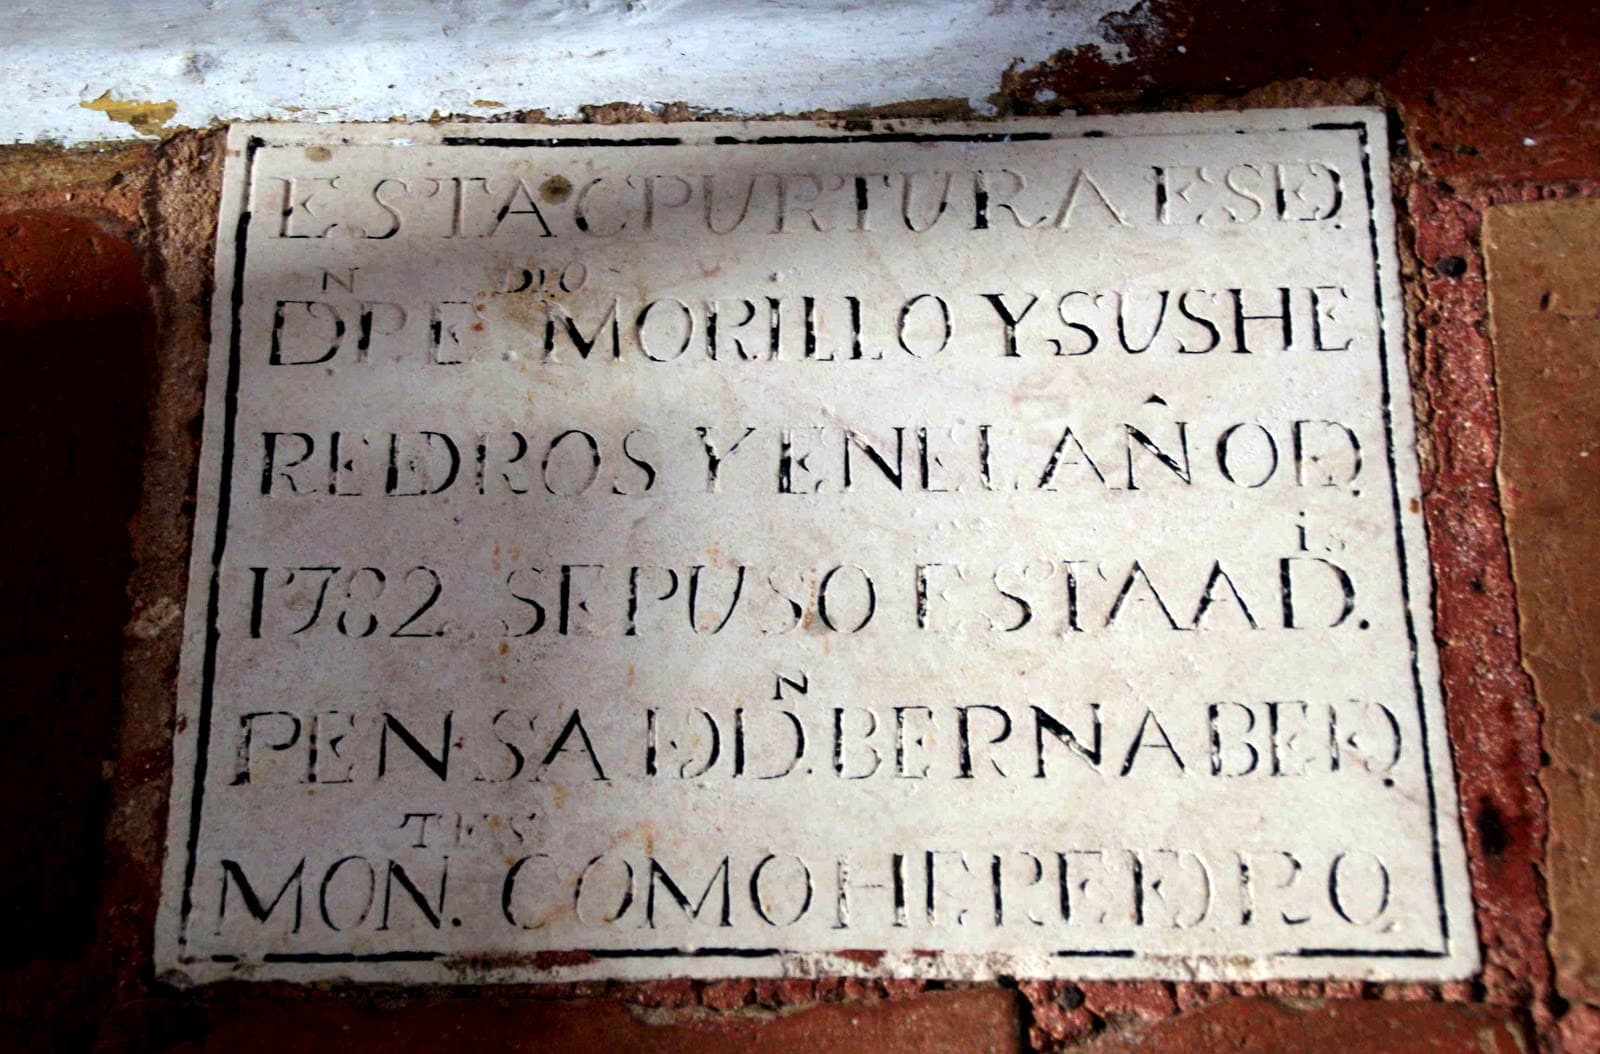 ESTA CPURTURA ES ED.
N DIO
D. PE. MORILLO Y SUS HE
REDROS Y EN EL AÑO D.
1782 SE PUSO ESTA A D.
is
PENSA DE D. BERNABE D.
N
MON. COMO HEREDRO
TES